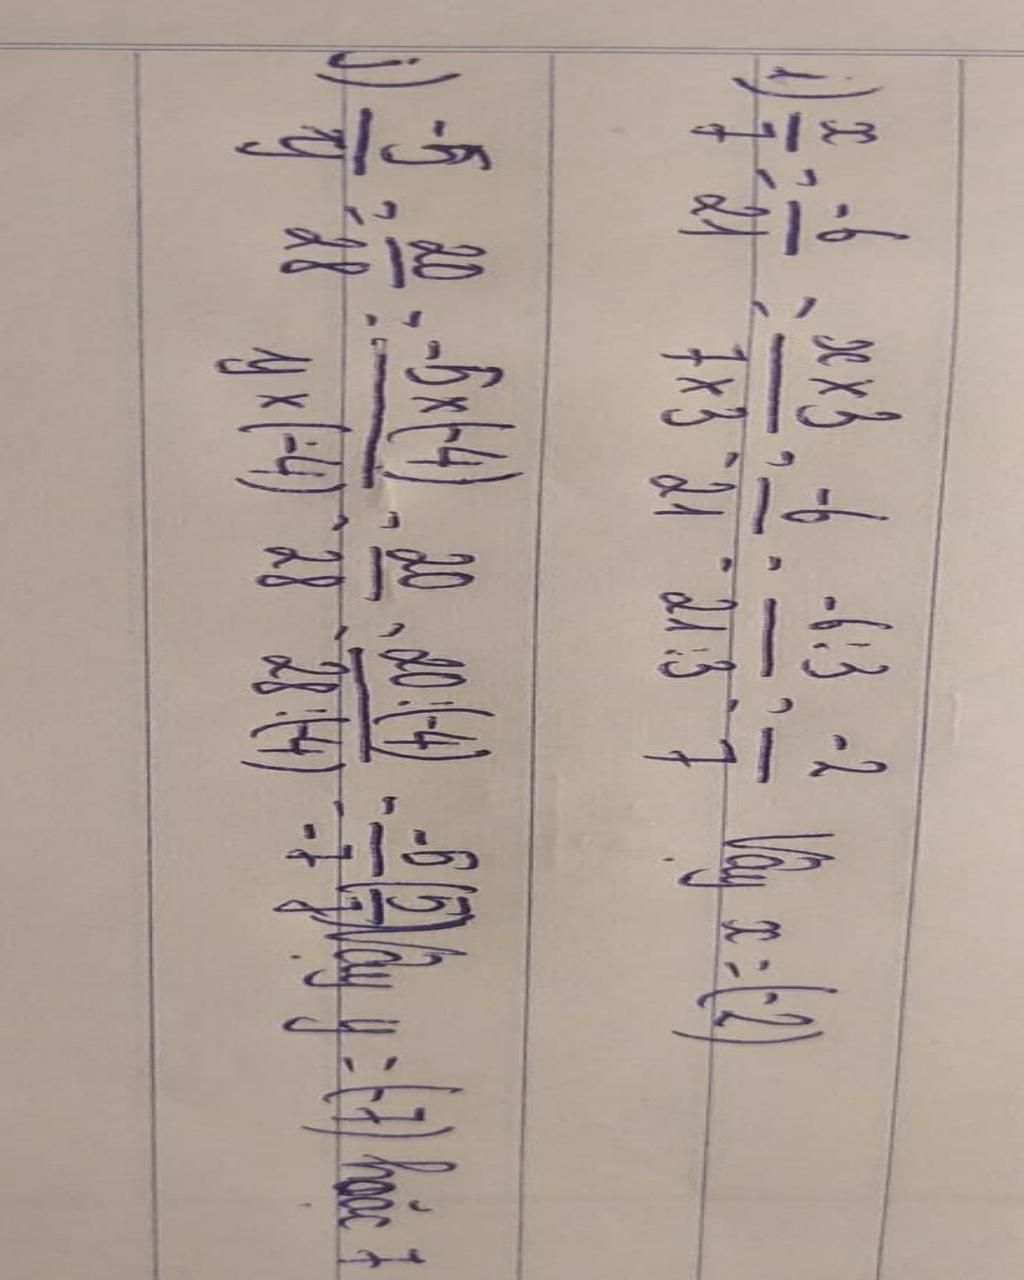 i) x/7 = -6/21 = x×3/7×3 = -6/21 = -6:3/21:3 = -2/7 Vậy x = (-2)
j) -5/y = 20/28 = -5×(-4)/y×(-4) = 20/28 = 20:(-4)/28:(-4) = -5/-7 (5/7) Vậy y = (-7) hoặc 7